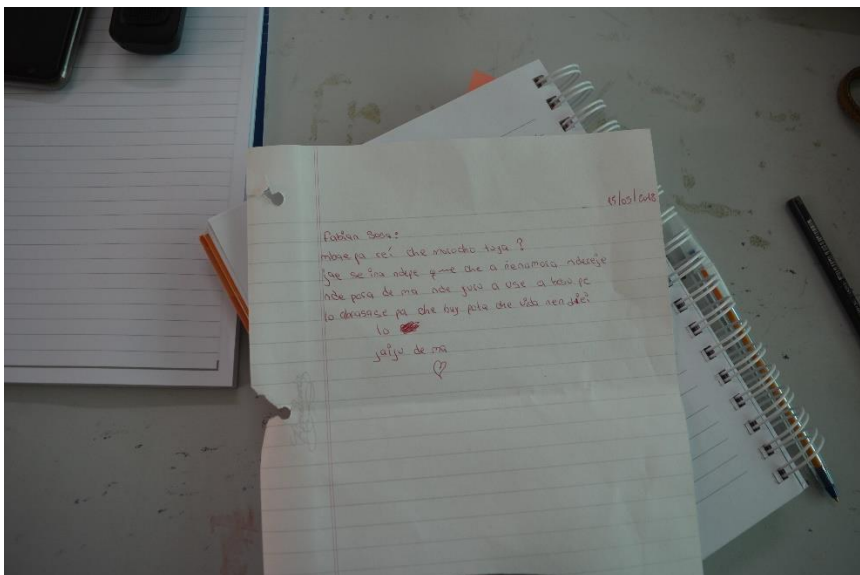 15/05/2018
Fabian Sosa:
mbae pa rei che machocho taga ?
jae se ina ndepe que che a ñenamora ndereje
nde pora de ma nde juru a use a beso pe
lo abrasase pa che buy pata che vida nendiei
lo
jaiju de ma